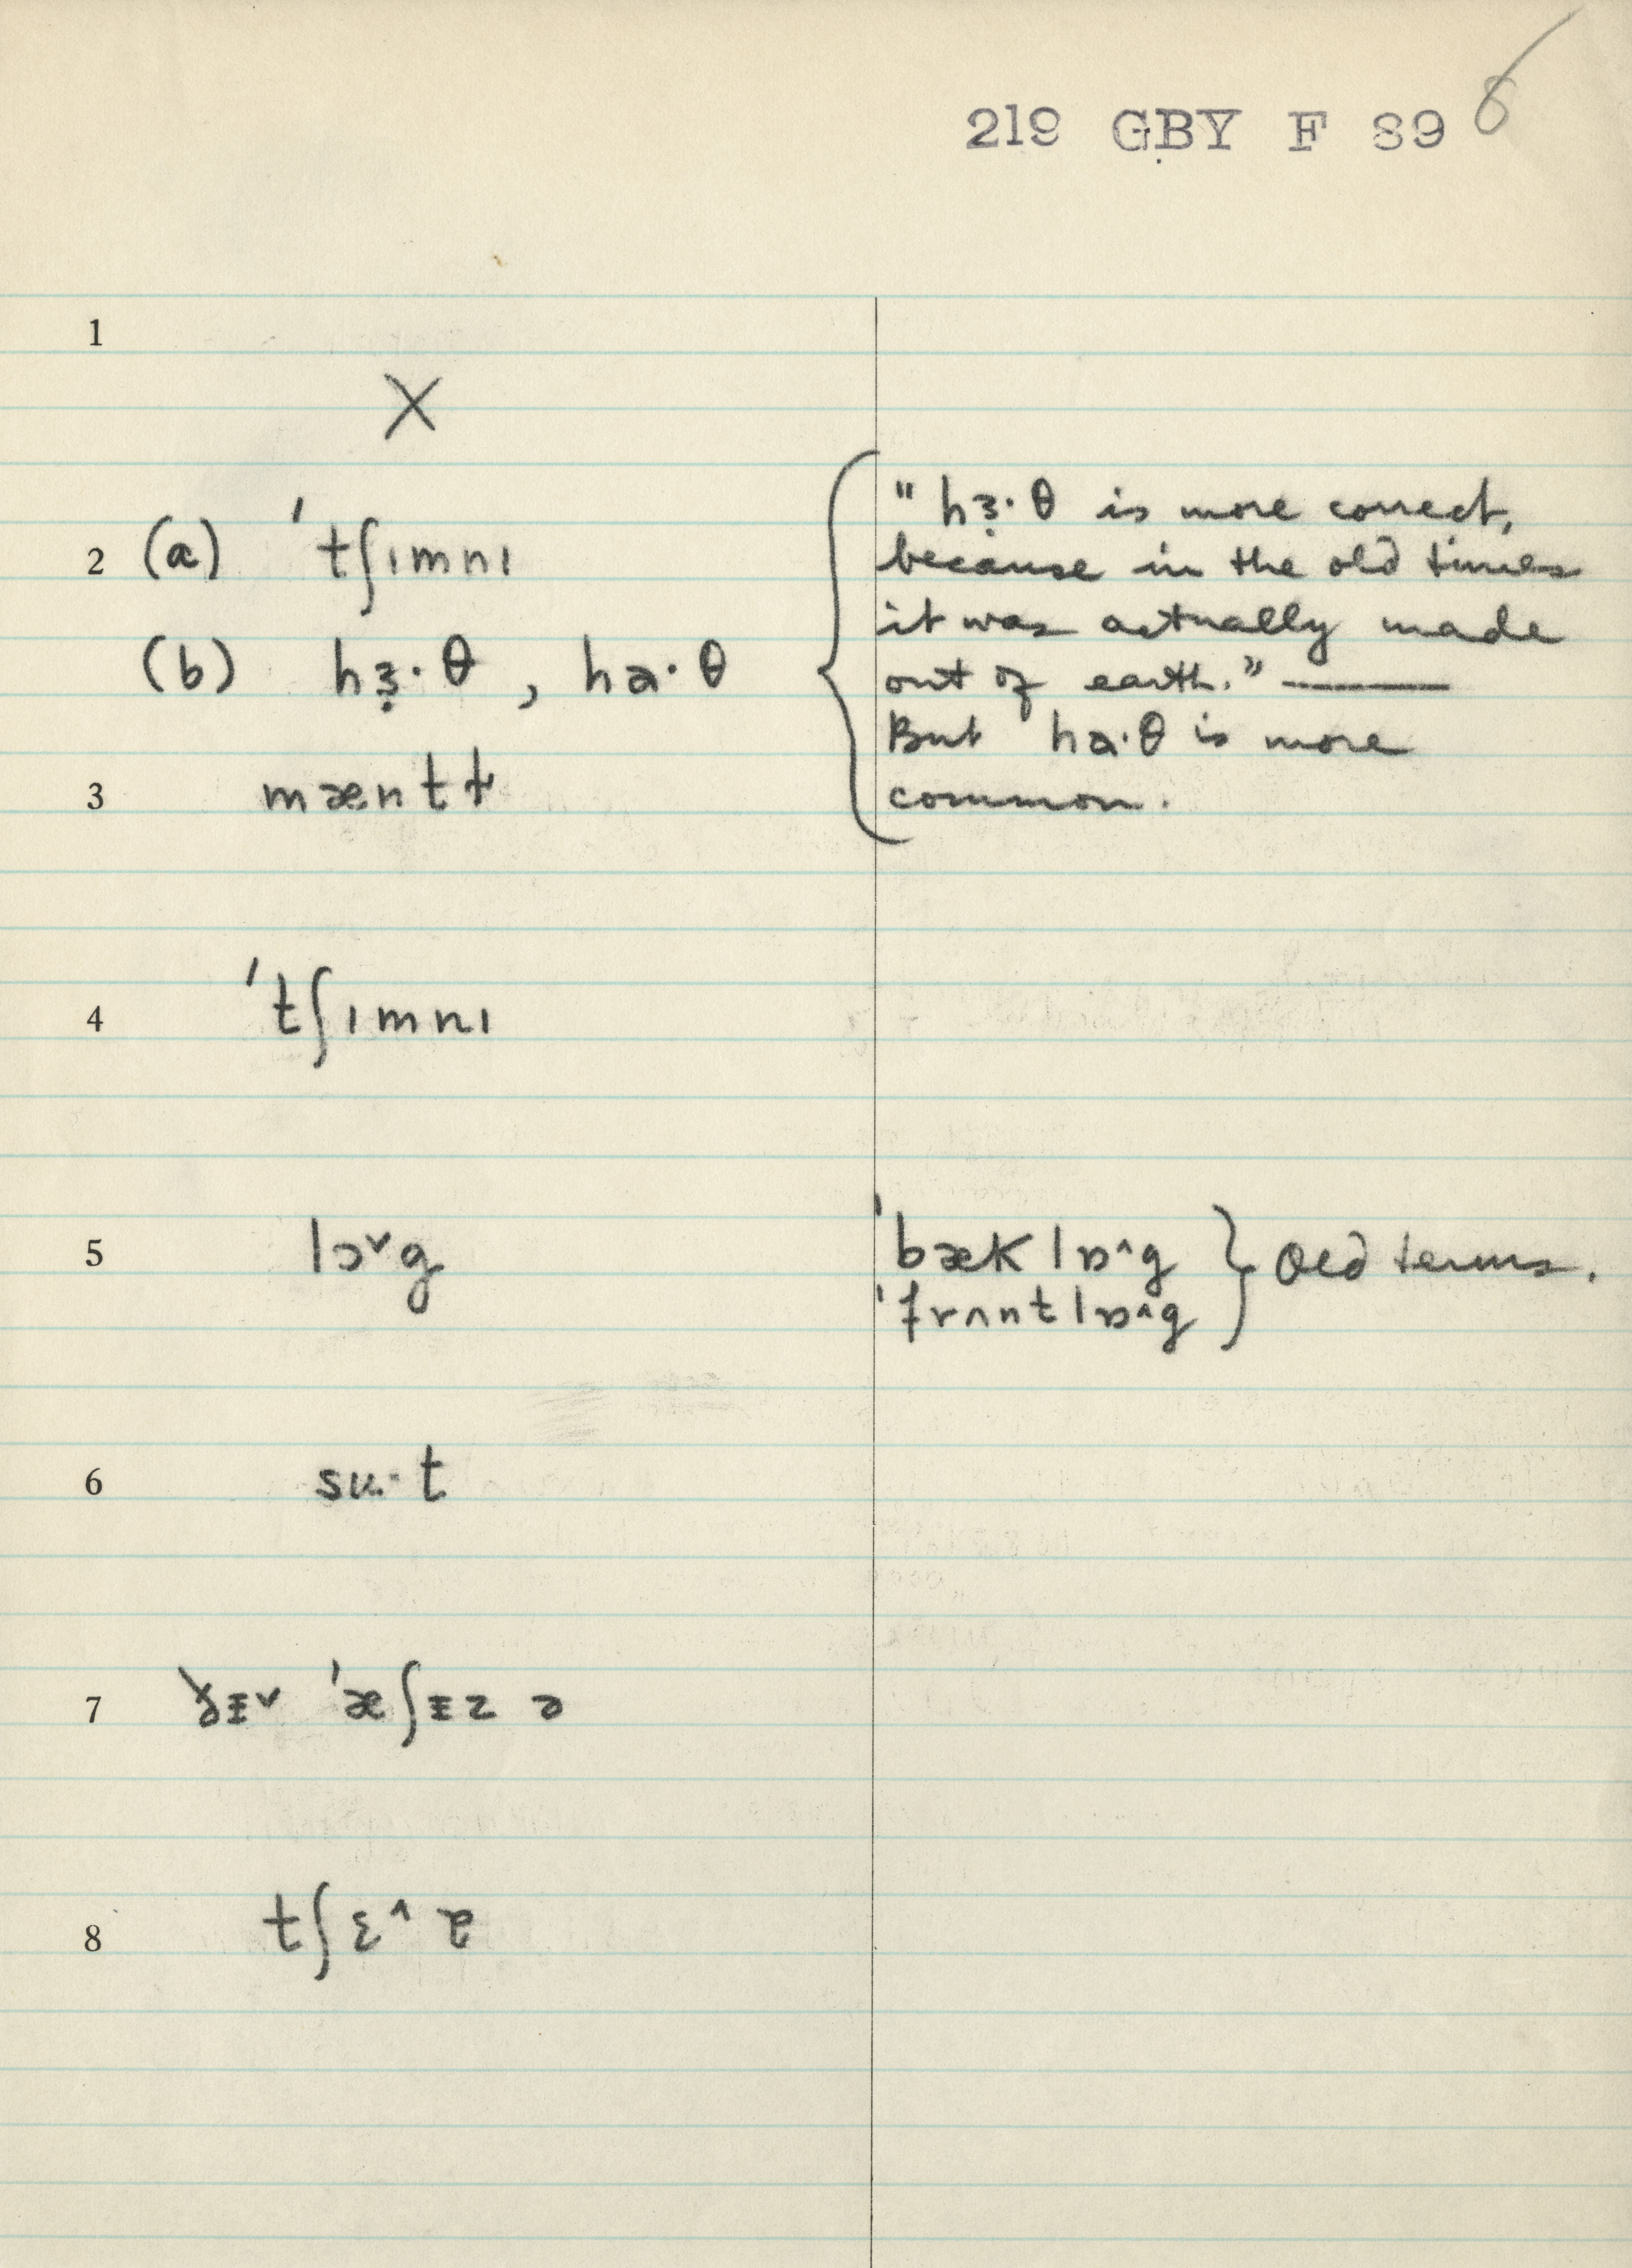 219 GBY F 89 6
1
X
2 (a) ˈtʃɪmnɪ
(b) hɜ̣·θ , ha·θ
" hɜ̣·θ is more correct,
because in the old times
it was actually made
out of earth." ———
But ha·θ is more
common.
3 mæntɫ
4 ˈtʃɪmnɪ
5 lɔ˅g
ˈbæk lɒ^g
ˈfrʌnt lɒ^g
Old terms.
6 sʊ·t
7 ˈæʃɪz
8 tʃɛ^ɐ